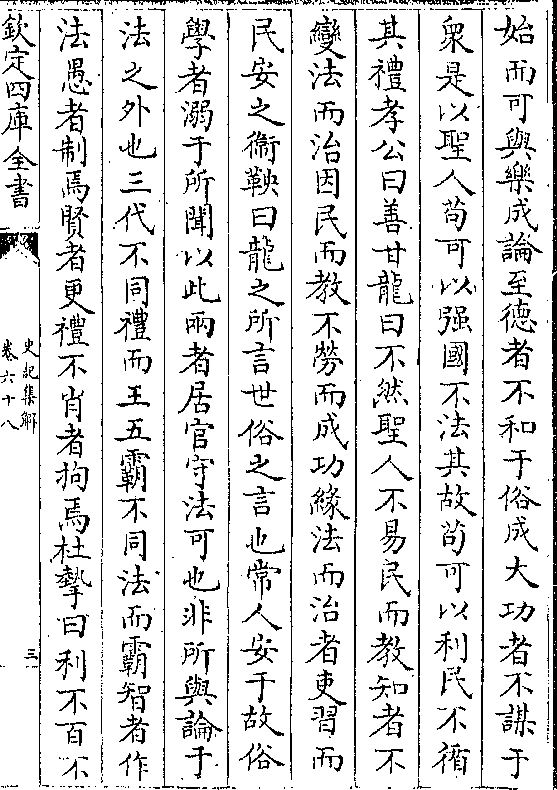 始而可與樂成論至德者不和于俗成大功者不謀于
衆是以聖人苟可以强國不法其故苟可以利民不循
其禮孝公曰善甘龍曰不然聖人不易民而教知者不
變法而治因民而教不勞而成功緣法而治者吏習而
民安之衞鞅曰龍之所言世俗之言也常人安于故俗
學者溺于所聞以此兩者居官守法可也非所與論于
法之外也三代不同禮而王五霸不同法而霸智者作
法愚者制焉賢者更禮不肖者拘焉杜摯曰利不百不
欽定四庫全書
史記集解
卷六十八
三